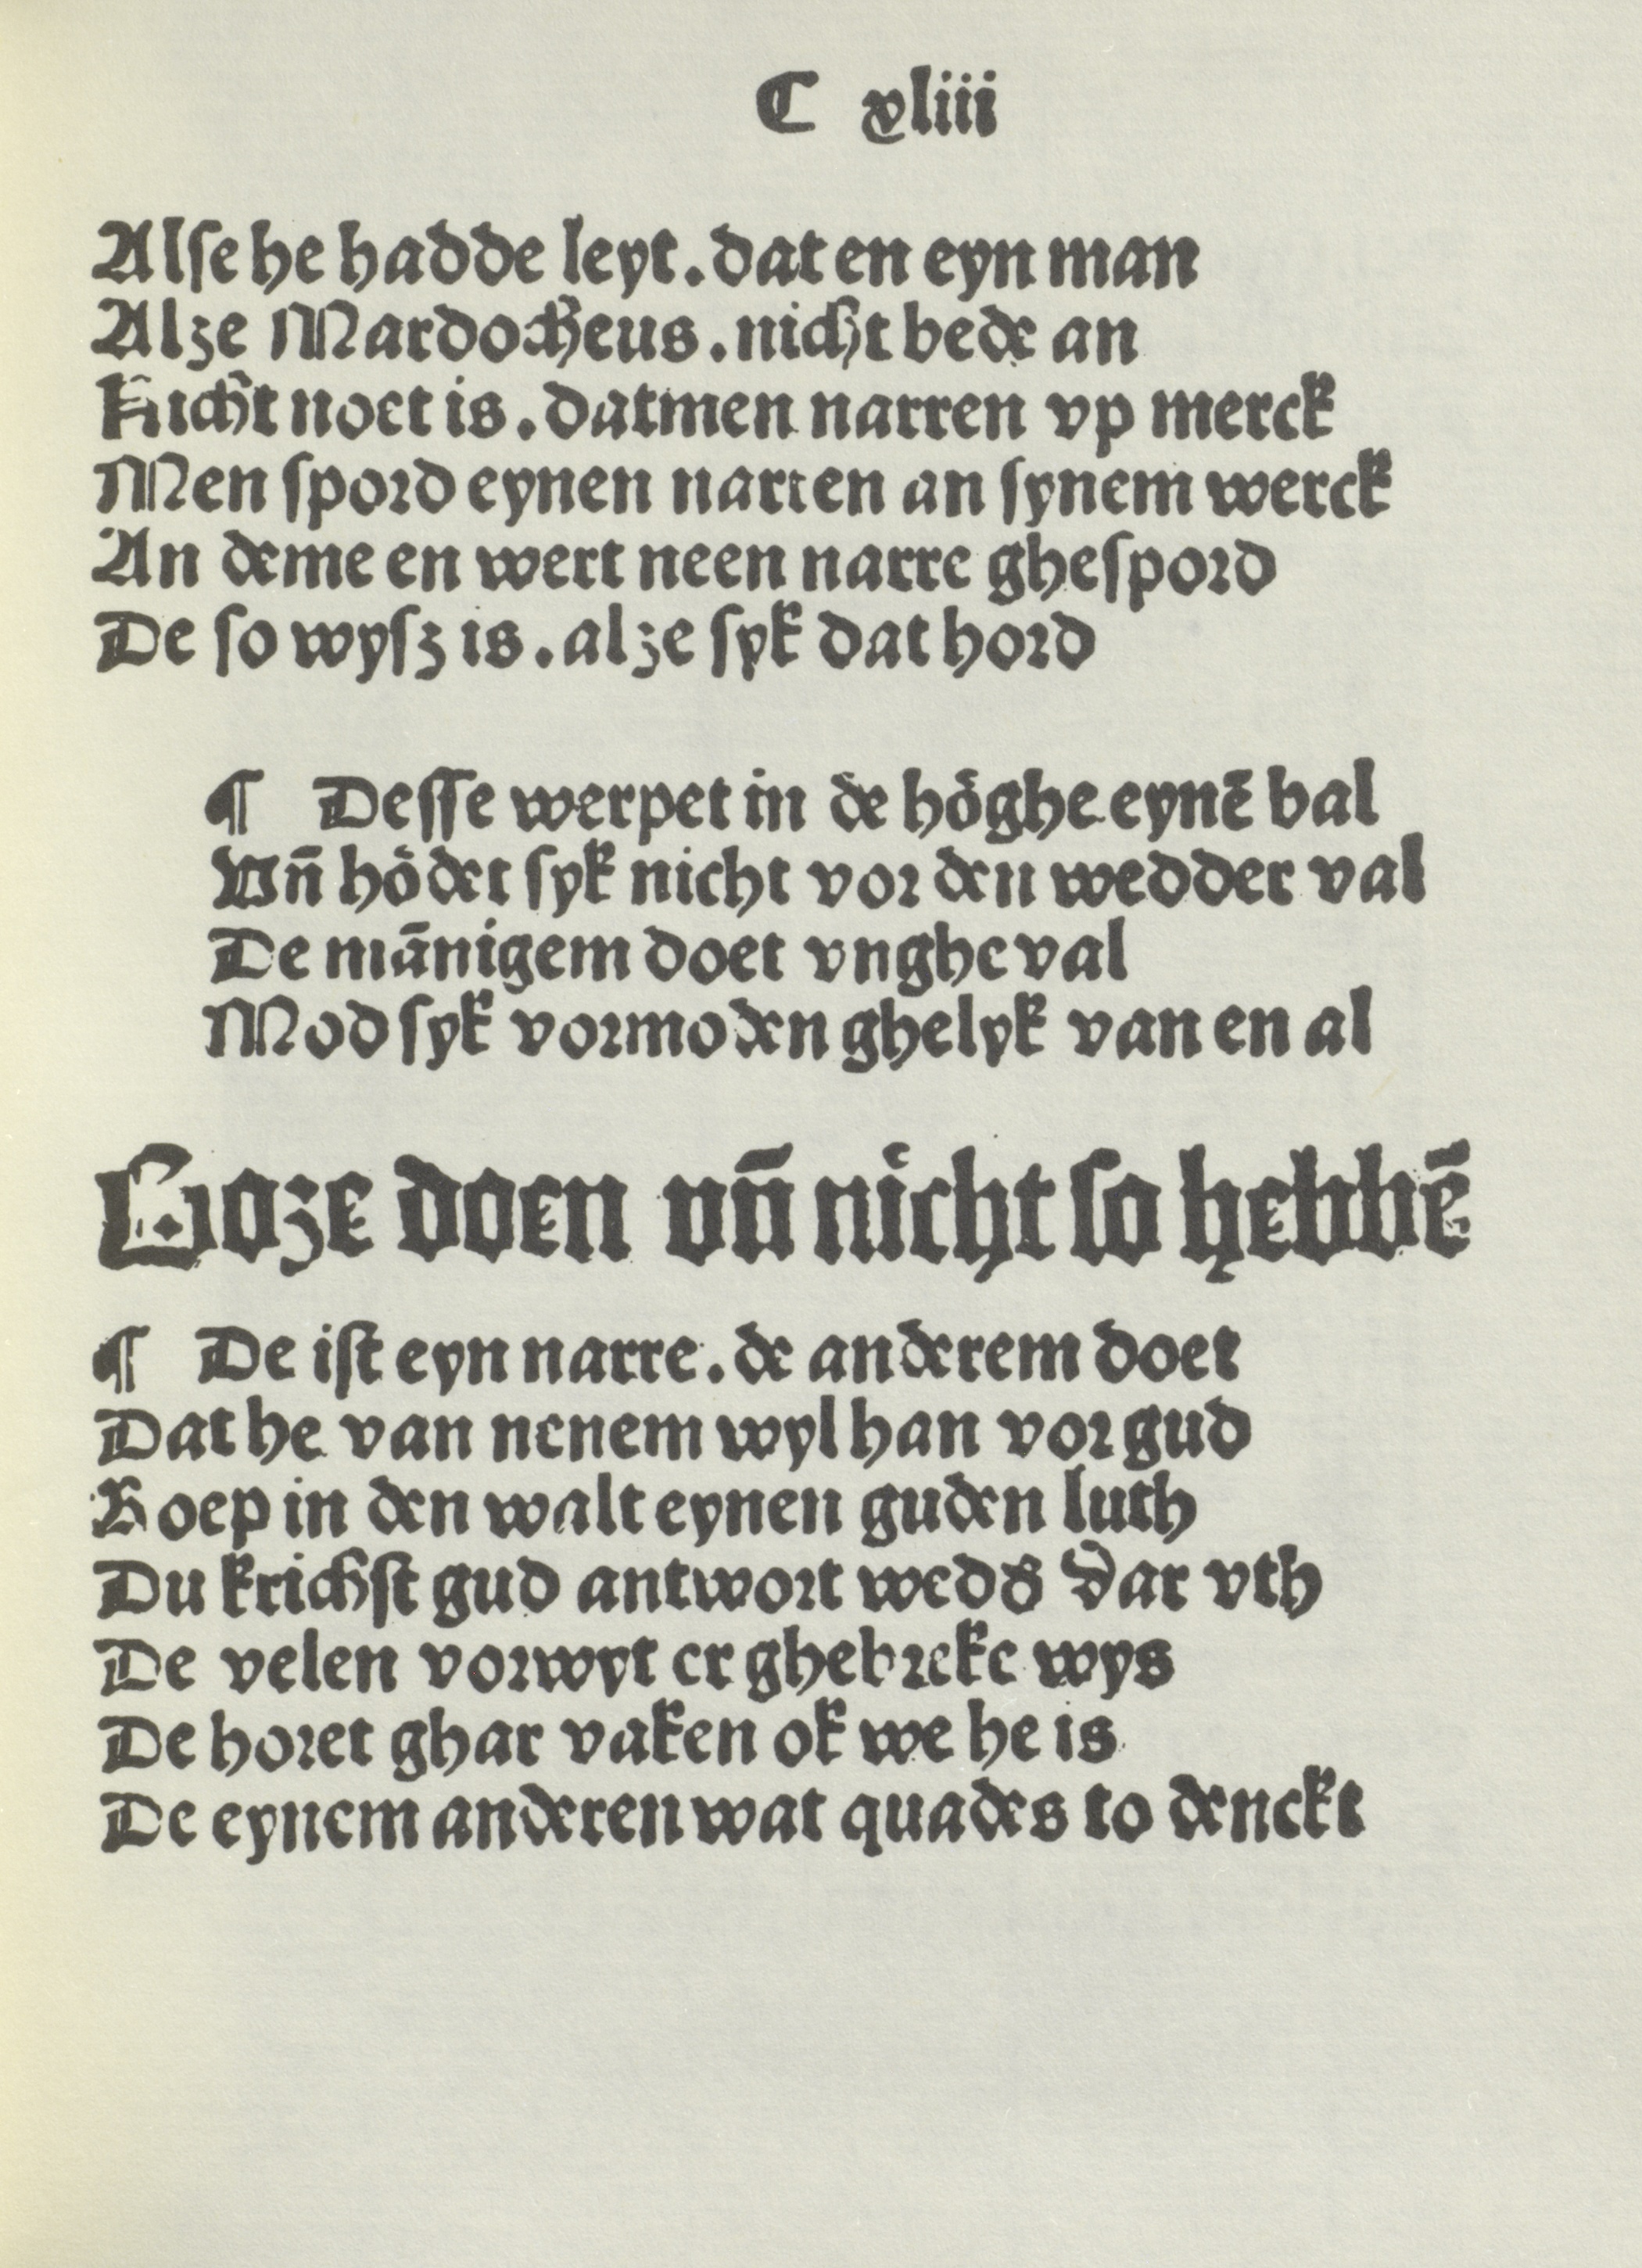 C xliii
Alſe he hadde leyt. dat en eyn man
Alze Mardocheus. nicht bede an
Nicht noet is. datmen narren vp merck
Men ſpord eynen narren an ſynem werck
An deme en wert neen narre gheſpord
De ſo wyſz is. alze ſyk dat hord
¶ Deſſe werpet in de hoͤghe eynē bal
Vn̄ hoͤdet ſyk nicht vor den wedder val
De mānigem doet vngheval
Mod ſyk vormoden ghelyk van en al
Boze doen vn̄ nicht ſo hebbē
¶ De iſt eyn narre. de anderem doet
Dat he van nenem wyl han vor gud
Roep in den walt eynen guden luth
Du krichſt gud antwort wedđ dar vth
De velen vorwyt er ghebreke wys
De horet ghar vaken ok we he is
De eynem anderen wat quades to denckt